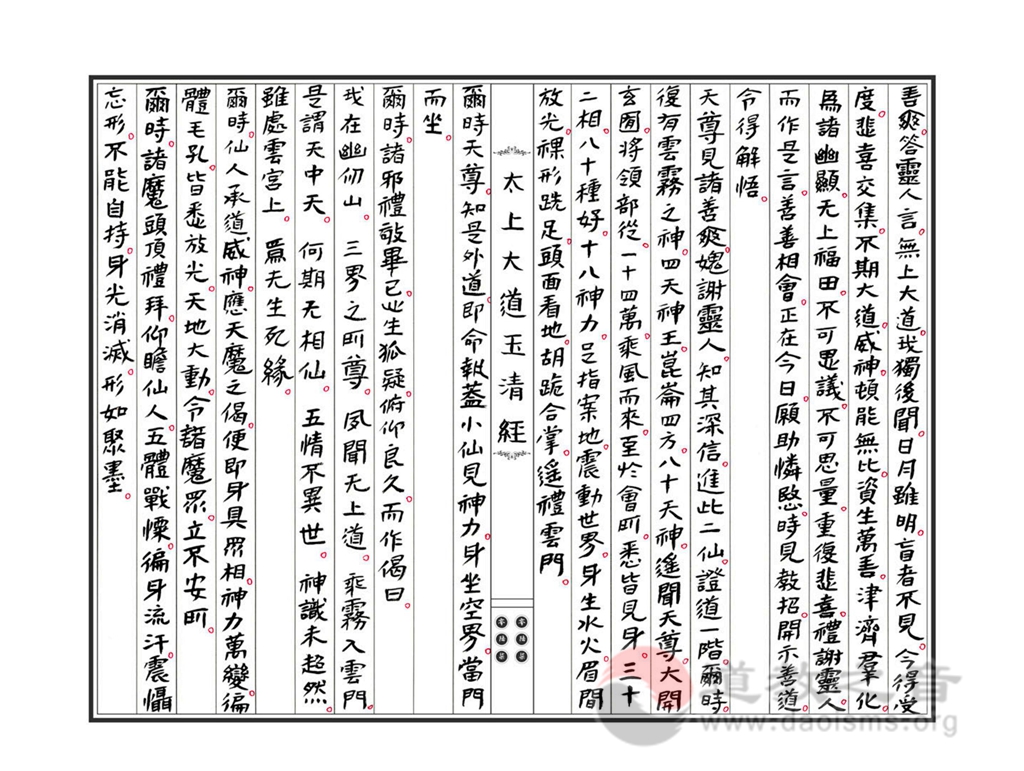 善爽答靈人言無上大道我獨後聞日月雖明盲者不見今得受
度悲喜交集不期大道威神頓能無比資生萬善津濟羣化
為諸幽顯无上福田不可思議不可思量重復悲喜禮謝靈人
而作是言善善相會正在今日願助憐愍時見教招開示善道
令得解悟
天尊見諸善爽媿謝靈人知其深信進此二仙證道一階爾時
復有雲霧之神四天神王崑崙四方八十天神遙聞天尊大開
玄圃將領部從一十四萬乘風而來至於會所悉皆見身三十
二相八十種好十八神力足指案地震動世界身生水火眉間
放光裸形跣足頭面看地胡跪合掌遙禮雲門
太上大道玉清經
爾時天尊知是外道即命執蓋小仙見神力身坐空界當門
而坐
爾時諸邪禮敬畢已心生狐疑俯仰良久而作偈曰
我在幽仞山 三界之所尊 夙聞无上道 乘霧入雲門
是謂天中天 何期无相仙 五情不異世 神識未超然
雖處雲宮上 焉无生死緣
爾時仙人承道威神應天魔之偈便即身具眾相神力萬變徧
體毛孔皆悉放光天地大動令諸魔眾立不安所
爾時諸魔頭頂禮拜仰瞻仙人五體戰慄徧身流汗震懾
忘形不能自持身光消滅形如聚墨
道教之音
www.daoisms.org